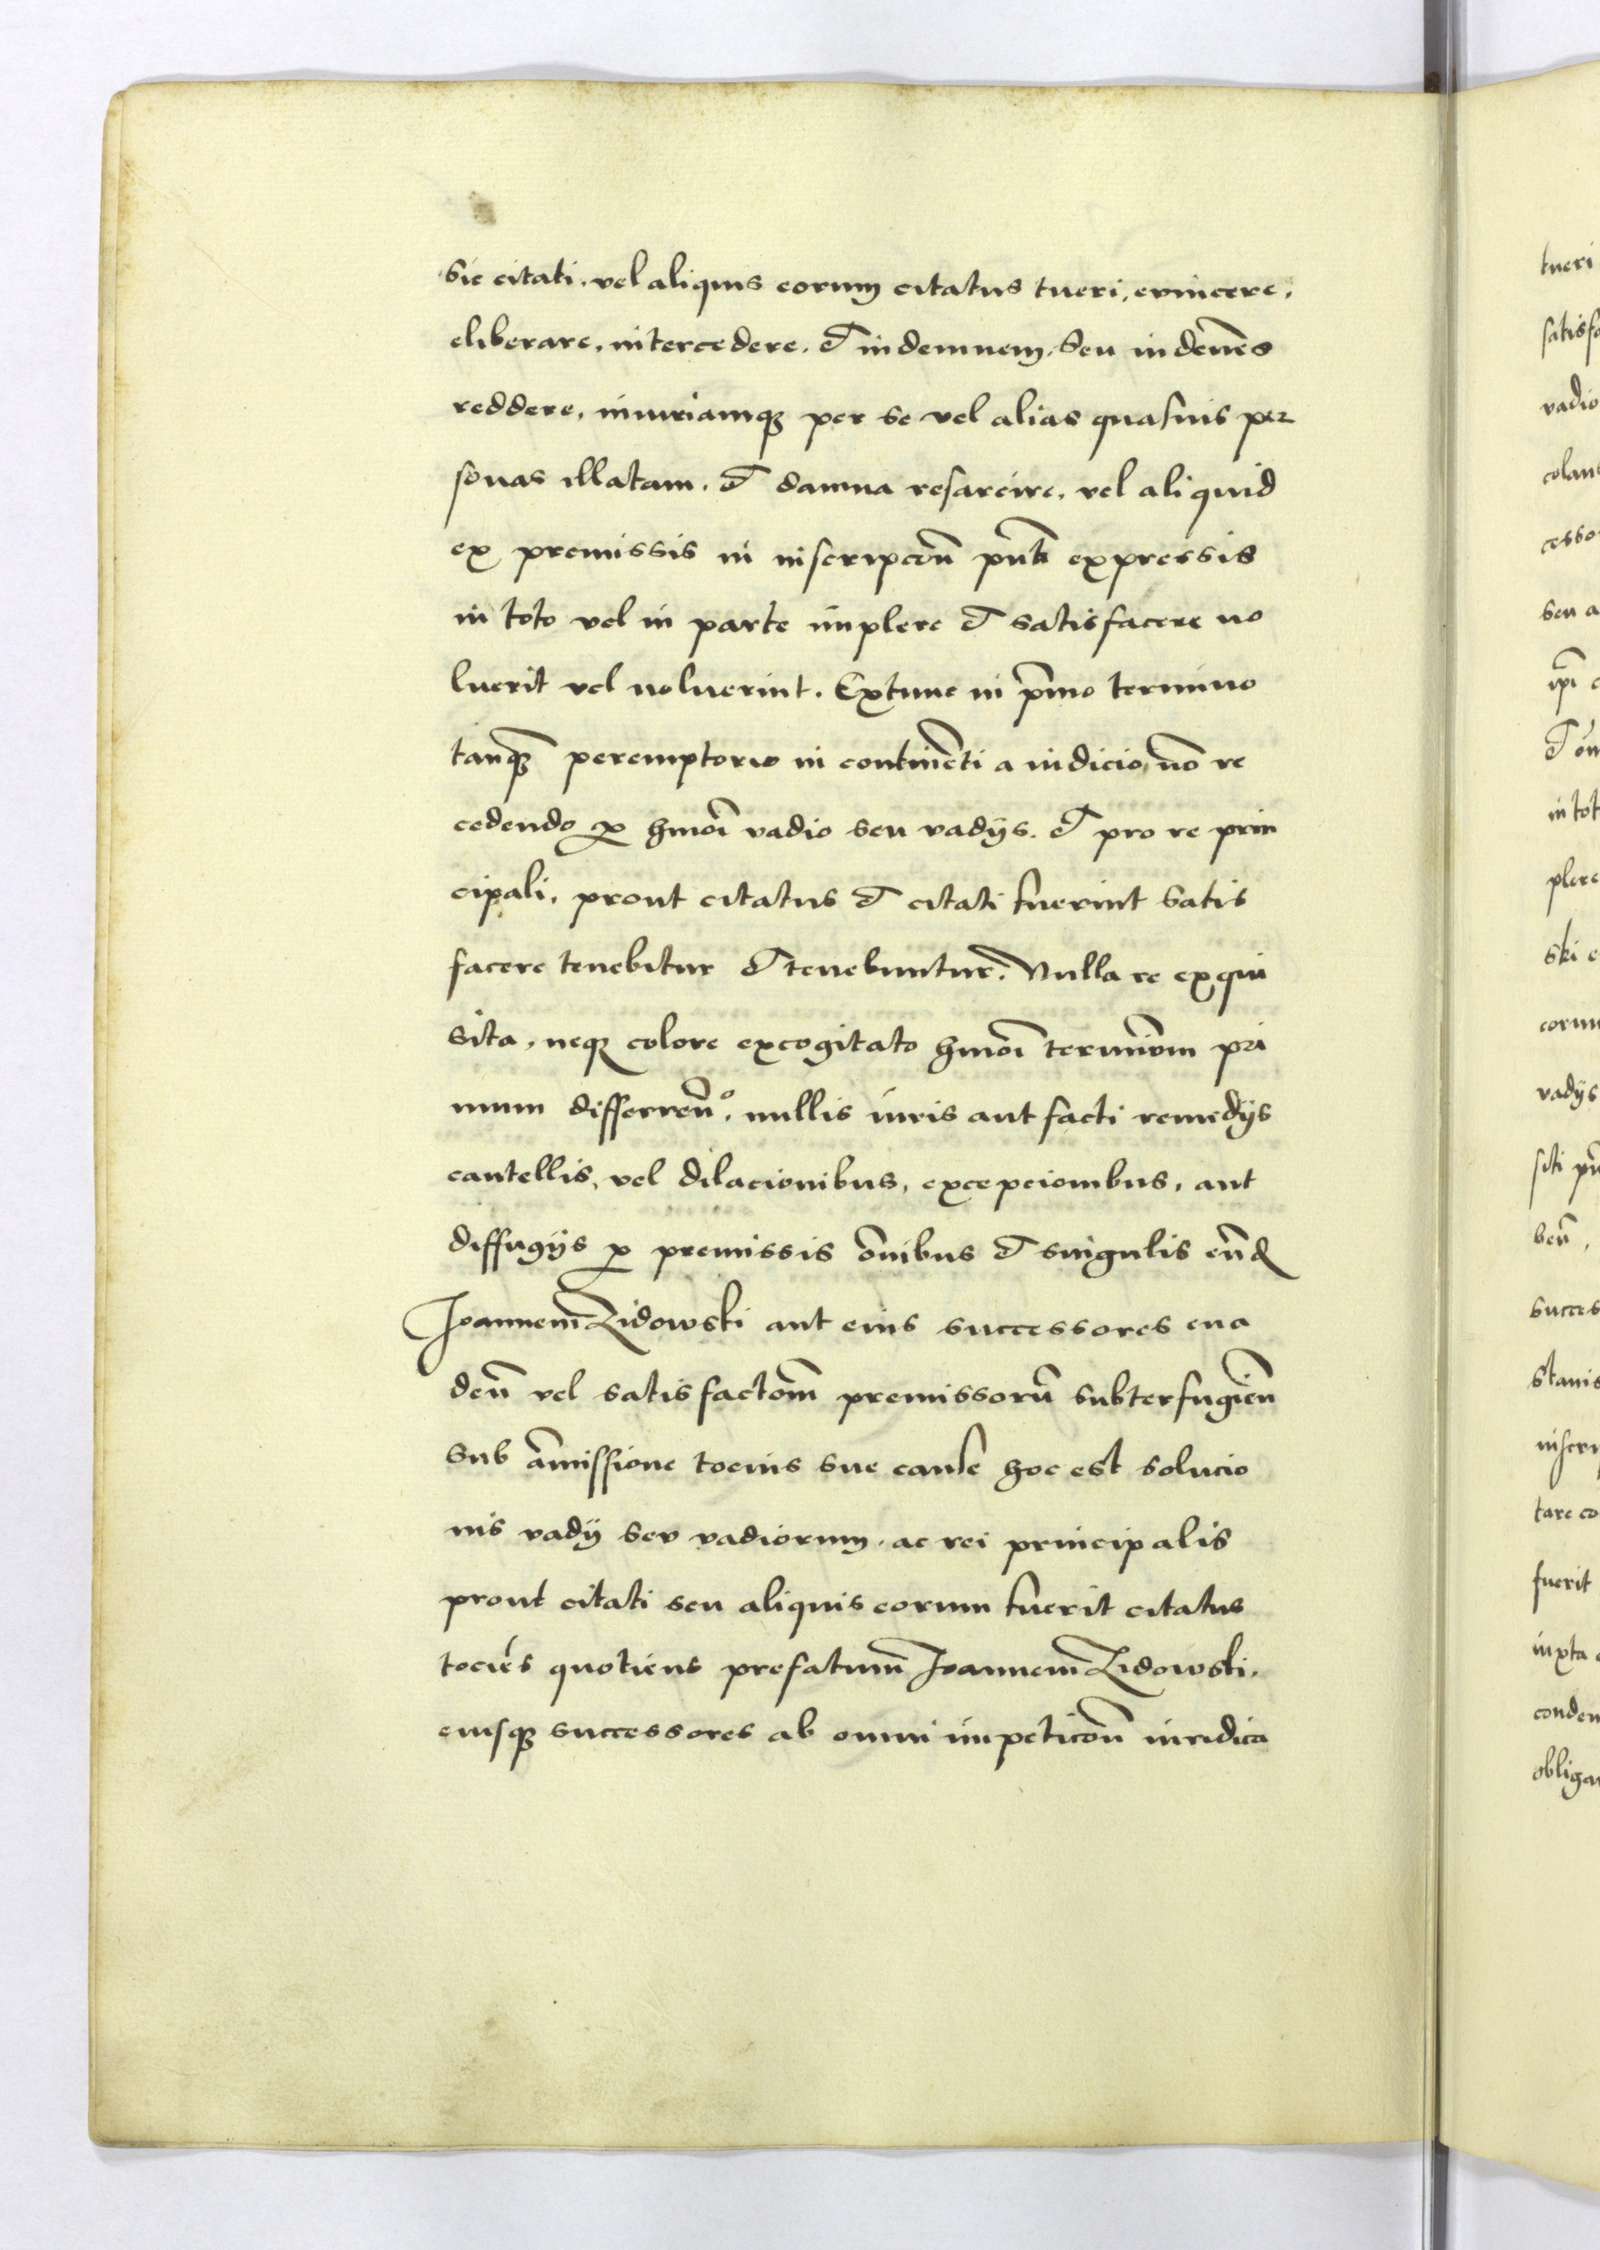 sic citati, vel aliquis eorum citatus tueri, evincere,
eliberare, intercedere, et indemnem, seu indēnes
reddere, iniuriamq₃ per se vel alias quasvis per
sonas illatam, et damna resarcire, vel aliquid
ex premissis in inscripcōn pn̄ti expressis
in toto vel in parte implere et satisfacere no
luerit vel noluerint. Extunc in p̄mo termino
tanq̄ peremptorio in continēti a iudicio nō re
cedendo ꝓ hmōi vadio seu vadijs, et pro re prin
cipali, prout citatus et citati fuerint satis
facere tenebitur et tenebuntur. Nulla re exqui
sita, neq₃ colore excogitato hmōi terminum pri
mum differren̄o, nullis iuris aut facti remedijs
cautellis, vel dilacionibus, excepcionibus, aut
diffugijs ꝓ premissis ōnibus et singulis eūd
Joannem Zidowski aut eius successores eva
den̄ vel satisfactōm premissorū subterfugien̄
sub āmissione tocius sue cause hoc est solucio
nis vadij seu vadiorum, ac rei principalis
prout citati seu aliquis eorum fuerit citatus
tociēs quotiens prefatum Joannem Zidowski,
eiusq₃ successores ab omni impeticōn iuridica
tueri
vadio
seu a
in tot
plere
ski e
vadijs
succes
tare co
fuerit
iuxta